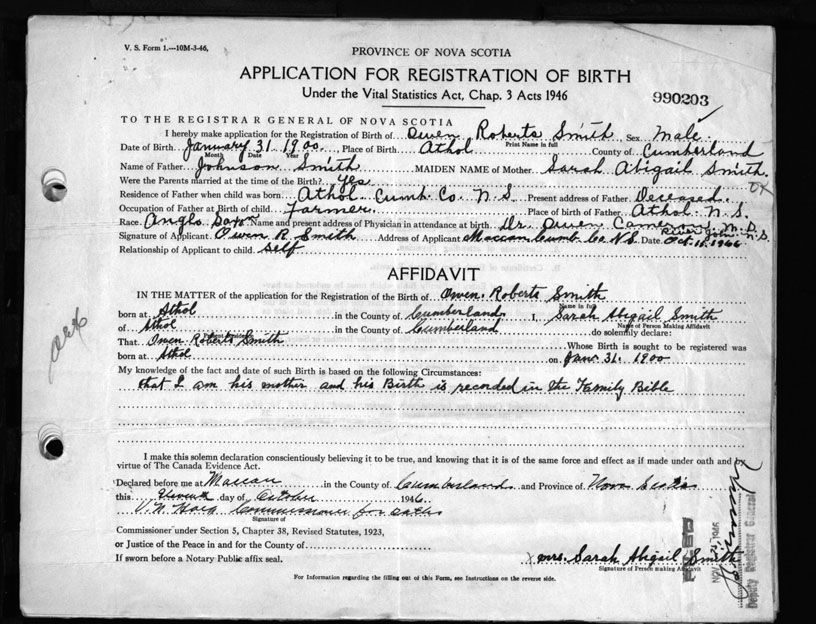 V. S. Form 1.—10M-3-46,
PROVINCE OF NOVA SCOTIA
APPLICATION FOR REGISTRATION OF BIRTH
Under the Vital Statistics Act, Chap. 3 Acts 1946
990203
TO THE REGISTRAR GENERAL OF NOVA SCOTIA
I hereby make application for the Registration of Birth of Owen Roberts Smith, Sex Male.
Print Name in full
Date of Birth January 31 1900. Place of Birth Athol County of Cumberland
Month Date Year
Name of Father Johnson Smith MAIDEN NAME of Mother Sarah Abigail Smith.
Were the Parents married at the time of the Birth? Yes
Residence of Father when child was born Athol Cumb. Co. N.S. Present address of Father Deceased.
Occupation of Father at Birth of child Farmer. Place of birth of Father Athol N.S.
Race. Anglo Saxon Name and present address of Physician in attendance at birth. Dr. Owen Cameron M.D.
River John N.S.
Signature of Applicant. Owen R Smith Address of Applicant Maccan Cumb. Co N.S. Date. Oct. 11. 1946
Relationship of Applicant to child. self
AFFIDAVIT
IN THE MATTER of the application for the Registration of the Birth of Owen Roberts Smith
Name in full
born at Athol in the County of Cumberland I, Sarah Abigail Smith
Name of Person Making Affidavit
of Athol in the County of Cumberland do solemnly declare:
That Owen Roberts Smith Whose Birth is sought to be registered was
born at Athol on Jan. 31. 1900
My knowledge of the fact and date of such Birth is based on the following Circumstances:
that I am his mother and his Birth is recorded in the Family Bible
I make this solemn declaration conscientiously believing it to be true, and knowing that it is of the same force and effect as if made under oath and by
virtue of The Canada Evidence Act.
Declared before me at Maccan in the County of Cumberland and Province of Nova Scotia
this Eleventh day of October 1946
Commissioner for Oaths
Signature of
Commissioner under Section 5, Chapter 38, Revised Statutes, 1923,
or Justice of the Peace in and for the County of
If sworn before a Notary Public affix seal.
x Mrs. Sarah Abigail Smith
Signature of Person making Affidavit
For Information regarding the filling out of this Form, see Instructions on the reverse side.
Deputy Registrar General